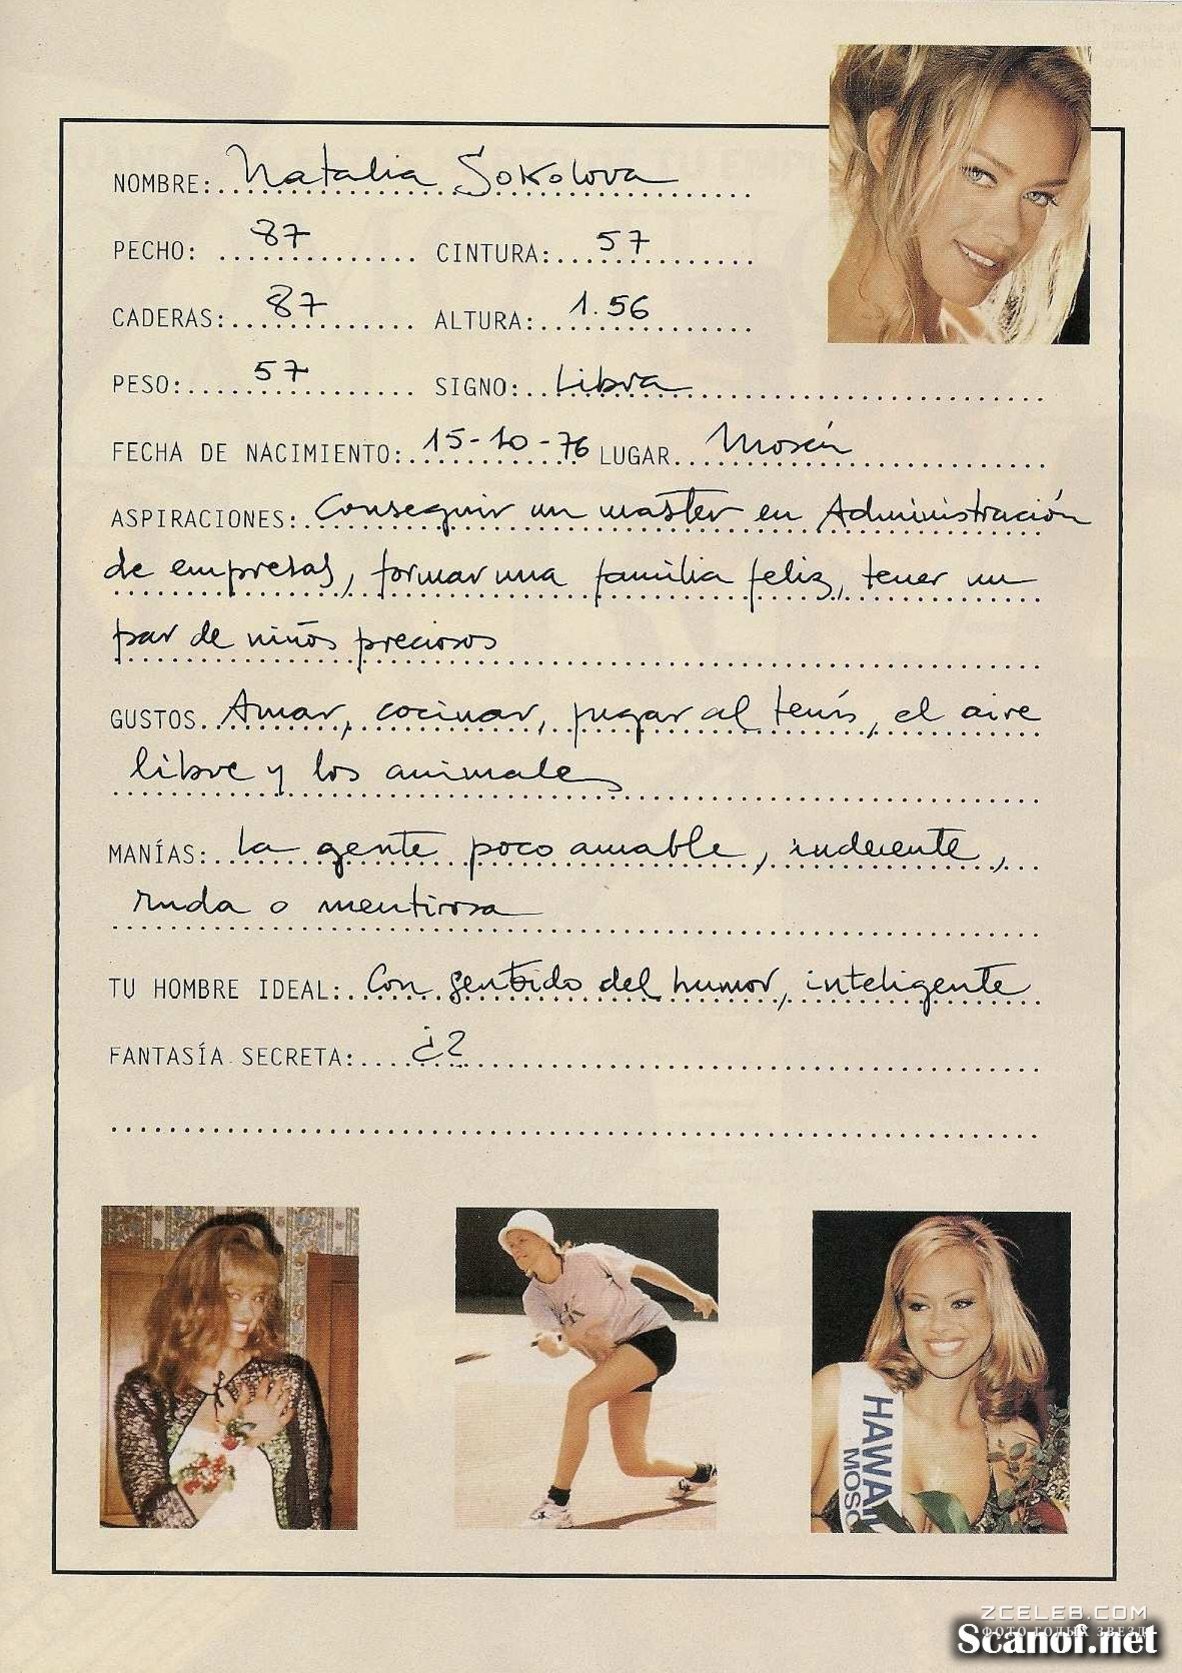 NOMBRE: Natalia Sokolova
PECHO: 87 CINTURA: 57
CADERAS: 87 ALTURA: 1.56
PESO: 57 SIGNO: Libra
FECHA DE NACIMIENTO: 15-10-76 LUGAR Moscú
ASPIRACIONES: Conseguir un master en Administración
de empresas, formar una familia feliz, tener un
par de niños preciosos
GUSTOS Amar, cocinar, jugar al tenis, el aire
libre y los animales
MANÍAS: La gente poco amable, indecente,
ruda o mentirosa
TU HOMBRE IDEAL: Con sentido del humor, inteligente
FANTASÍA SECRETA: ¿?
HAWAII
MOSC
ZCELEB.COM
ФОТО ГОЛЫХ ЗВЕЗД
Scanof.net